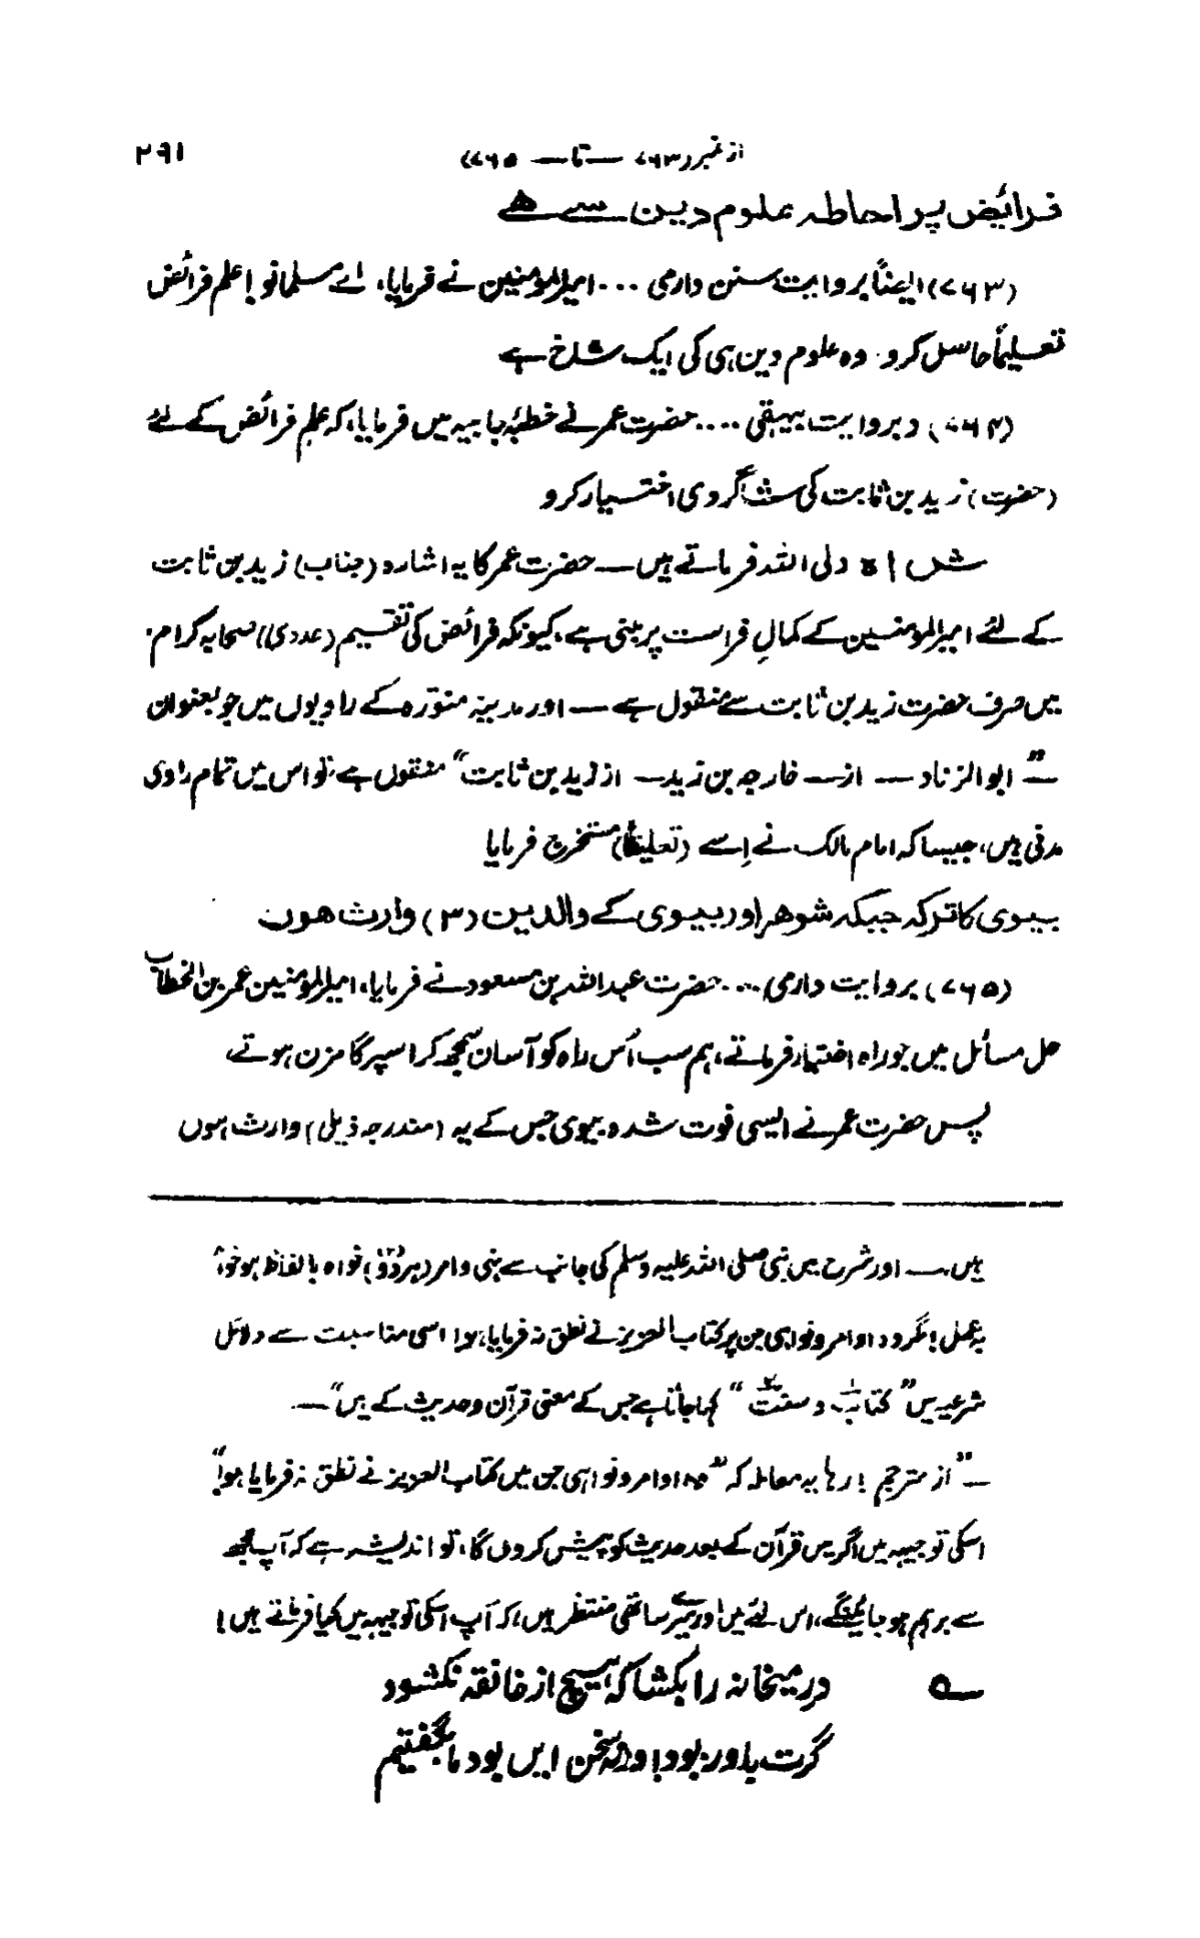 از نمبر (۷۶۳ — تا — ۷۶۵) ۲۹۱
فرائض پر احاطہ علوم دین سے ہے
(۷۶۳) ایضاً بروایت سنن دارمی ... امیرالمؤمنین نے فرمایا، اے مسلمانو! علم فرائض
تعلیماً حاصل کرو۔ وہ علوم دین ہی کی ایک شاخ ہے
(۷۶۴) و بروایت بیہقی .... حضرت عمر نے خطبۂ جابیہ میں فرمایا، کہ علم فرائض کے لئے
(حضرت) زید بن ثابت کی شاگردی اختیار کرو
شاہ ولی اللہ فرماتے ہیں — حضرت عمر کا یہ اشارہ (جناب) زید بن ثابت
کے لئے امیرالمومنین کے کمالِ فراست پر مبنی ہے، کیونکہ فرائض کی تقسیم (عددی) صحابہ کرام
میں صرف حضرت زید بن ثابت سے منقول ہے — اور مدینہ منورہ کے راویوں میں جو بعنوان
—" ابوالزناد — از — خارجہ بن زید — از زید بن ثابت" منقول ہے، تو اس میں تمام راوی
مدنی ہیں، جیسا کہ امام مالک نے اِسے (تعلیقاً) مستخرج فرمایا
بیوی کا ترکہ جبکہ شوہر اور بیوی کے والدین (۳) وارث ہوں
(۷۶۵) بروایت دارمی ... حضرت عبداللہ بن مسعود نے فرمایا، امیرالمومنین عمر بن الخطاب
حل مسائل میں جو راہ اختیار فرماتے، ہم سب اُس راہ کو آسان سمجھ کر اسپر گامزن ہوتے
پس حضرت عمر نے ایسی فوت شدہ بیوی جس کے یہ (مندرجہ ذیل) وارث ہوں
ہیں — اور شرح میں نبی صلی اللہ علیہ وسلم کی جانب سے نہی و امر (ہر دُو) خواہ بالفاظ ہو خواہ
بہ عمل! مگر وہ اوامر و نواہی جن پر کتاب العزیز نے نطق نہ فرمایا ہو! اسی مناسبت سے دلائل
شرعیہ میں "کتاب و سنت" کہا جاتا ہے جس کے معنی قرآن و حدیث کے ہیں"—
—" از مترجم! رہا یہ معاملہ کہ "وہ اوامر و نواہی جن میں کتاب العزیز نے نطق نہ فرمایا ہو"
اسکی توجیہہ میں اگر میں قرآن کے بعد حدیث کو پیش کروں گا، تو اندیشہ ہے کہ آپ مجھ
سے برہم ہو جائینگے، اس لئے میں اور میرے ساتھی منتظر ہیں، کہ آپ اسکی توجیہہ میں کیا فرماتے ہیں!
ے درِ میخانہ را بکشا کہ ہیچ از خانقہ نکشود
گرت باور بود ورنہ سخن ایں بود ما گفتیم